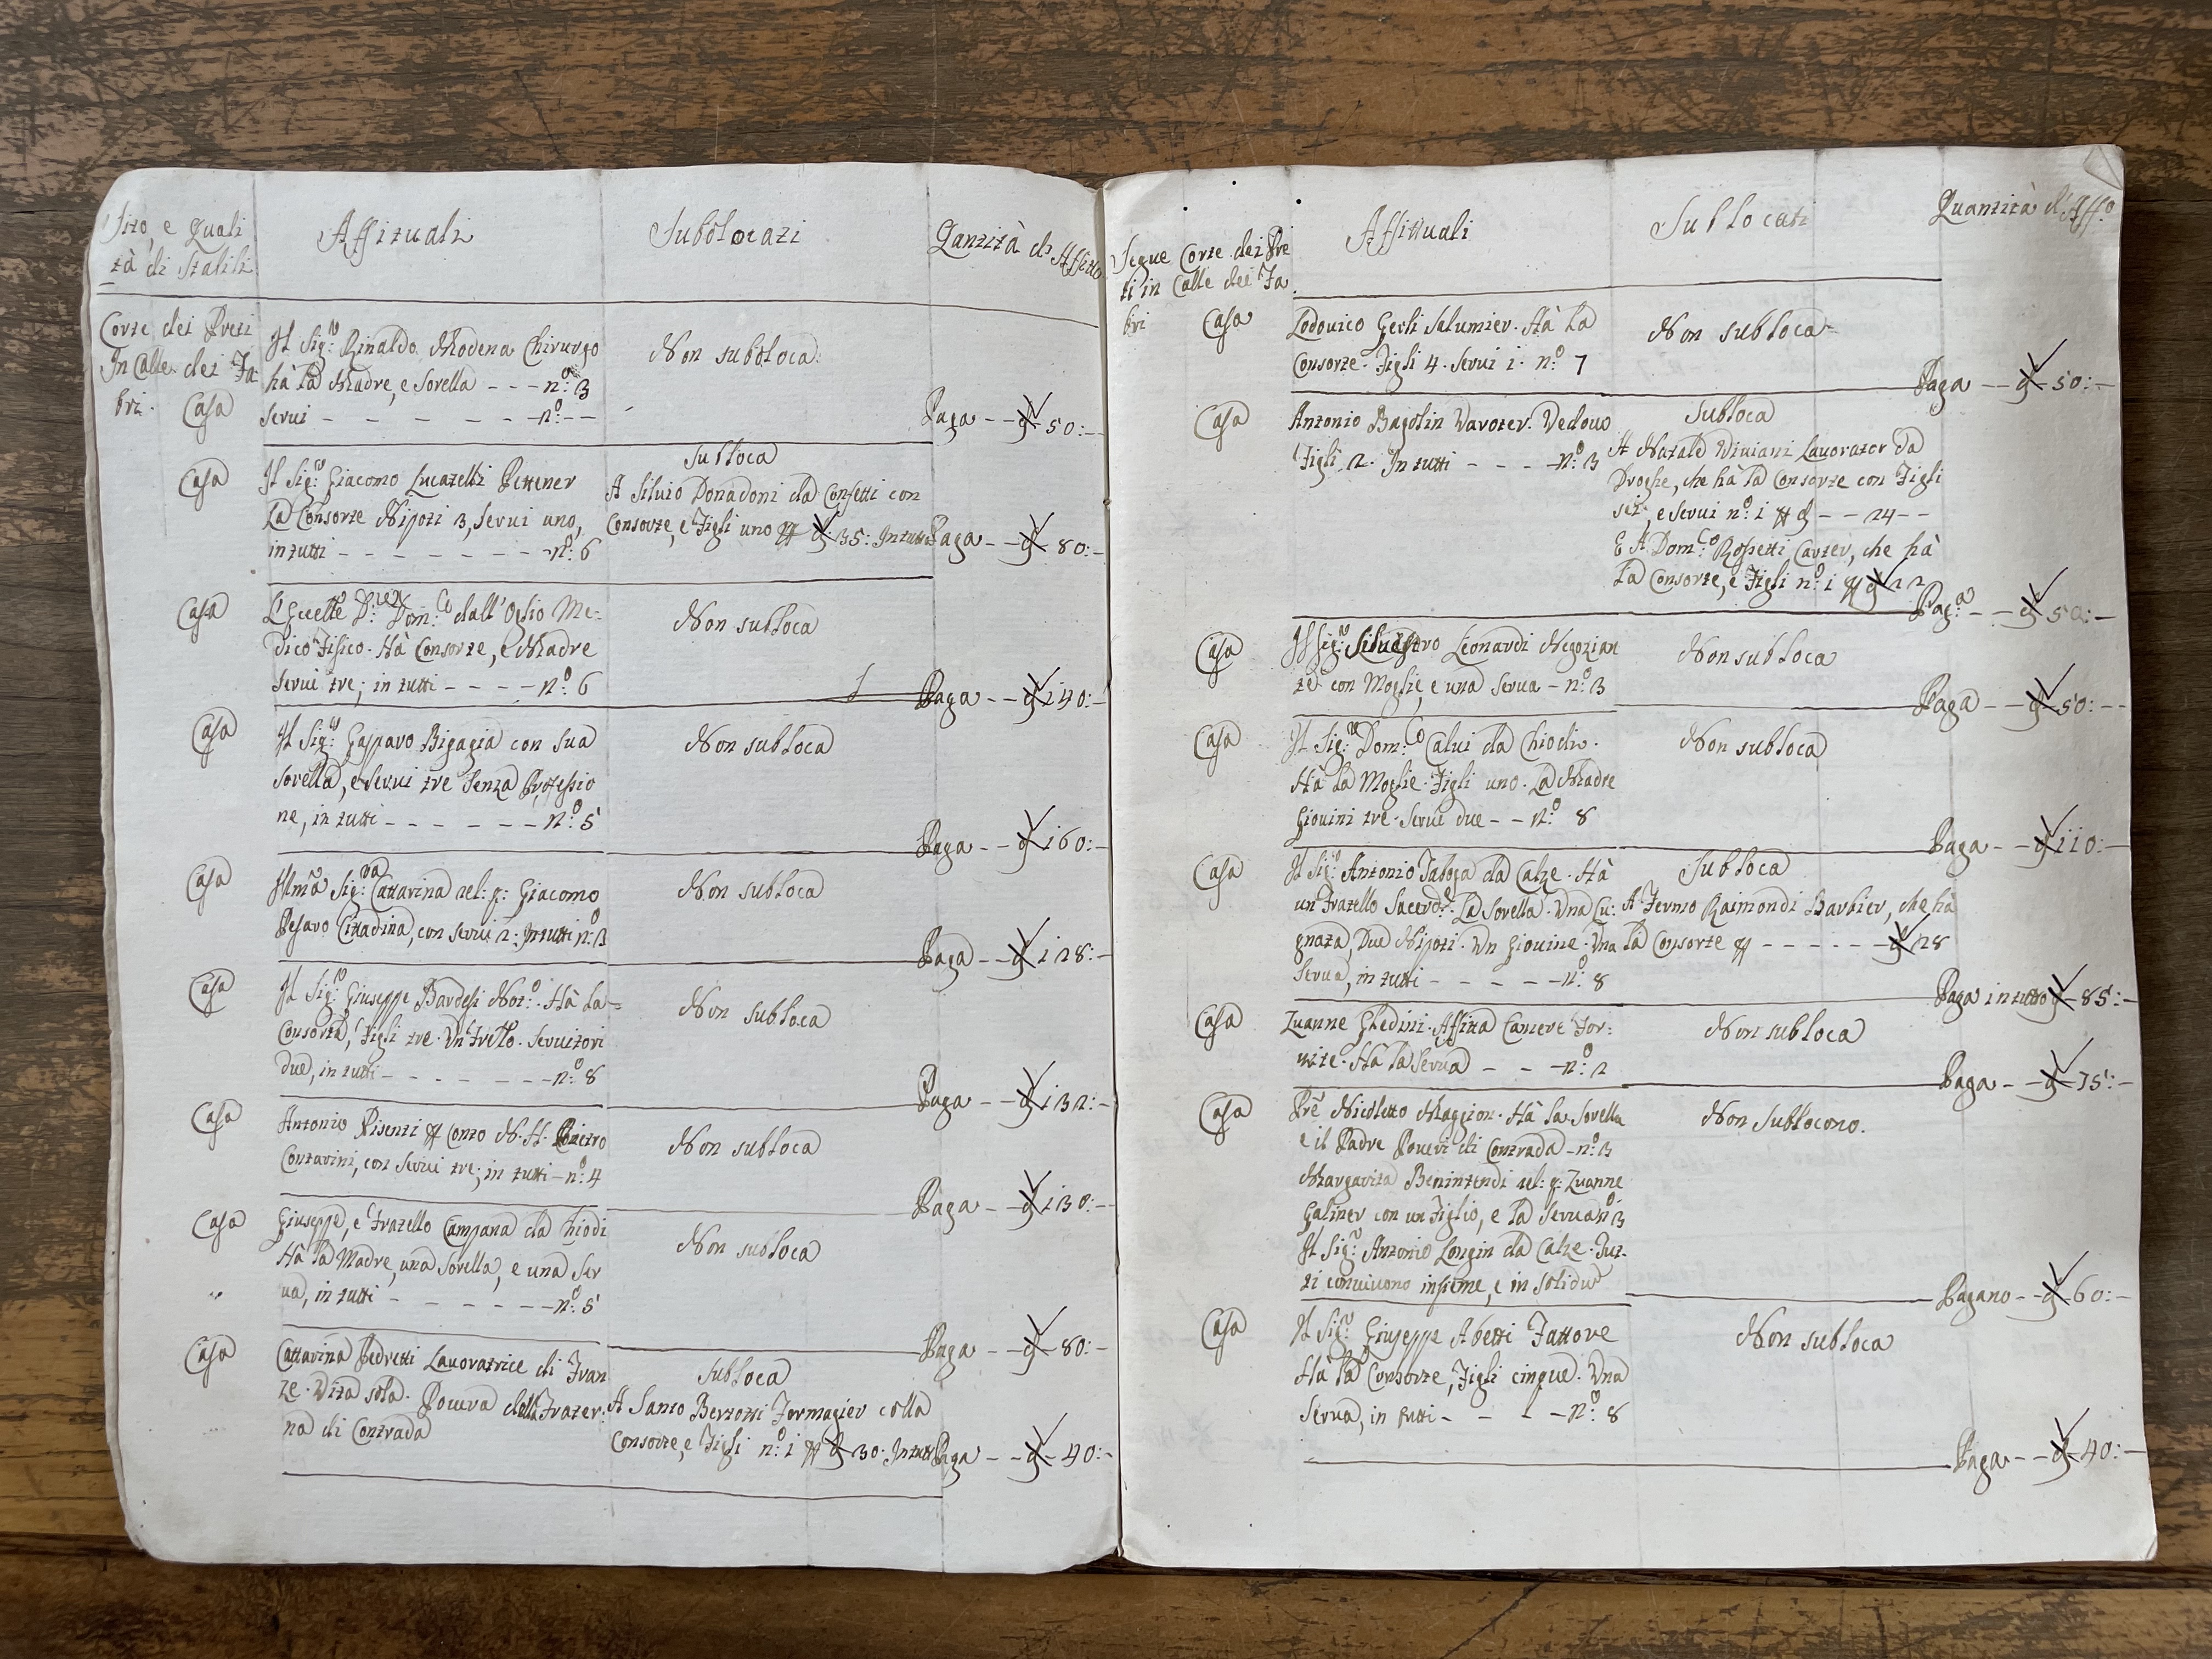 Sito, e Quali
tà di Stabili
Affituali
Sublocati
Qantità di Affitto
Corte dei Preti
In Calle dei Fa
bri. Casa
Il Sig.r Rinaldo Modena Chirurgo
hà la Madre, e Sorella - - - n.o 3
Servi - - - - - - n.o - -
Non subloca
Paga - - 50:-
Casa
Il Sig.r Giacomo Lucatelli Pettener
La Consorte Nipoti 3, Servi uno,
in tutti - - - - - - - n.o 6
Subloca
A Silvio Donadoni da Confetti con
Consorte, e Figli uno 35: In tutto
Paga - - 80:-
Casa
Dom.co dall'Oglio Me-
dico Fisico. Hà Consorte, e Madre
Servi tre; in tutti - - - - n.o 6
Non subloca
Paga - - 140:-
Casa
Il Sig.r Gasparo Bigagia con sua
Sorella, e Servi tre senza Professio
ne, in tutti - - - - - - n.o 5
Non subloca
Paga - - 160:-
Casa
Illma Sig.ra Cattarina rel: q: Giacomo
Pesaro Cittadina, con Servi 2: In tutti n.o 3
Non subloca
Paga - - 128:-
Casa
Il Sig.r Giuseppe Bardesi Nor.o. Hà la
Consorte, Figli tre. Un Frello. Servitori
due, in tutti - - - - - - n.o 8
Non subloca
Paga - - 132:-
Casa
Antonio Pisenti Conto N. H. Pietro
Contarini, con Servi tre; in tutti - n.o 4
Non subloca
Paga - - 130:-
Casa
Giuseppe, e Fratello Campana da Chiodi
Hà la Madre, una Sorella, e una Ser
va, in tutti - - - - - - n.o 5
Non subloca
Paga - - 80:-
Casa
Cattarina Pedretti Lavoratrice di Fran
ze. Vita sola. Povera della Frater:
na di Contrada
Subloca
A Santo Bertotti Formagier colla
Consorte, e Figli n.o 1 30: In tutto
Paga - - 40:-
Segue Corte dei Pre
ti in Calle dei Fa
bri
Affittuali
Sublocati
Quantità d'Aff.o
Casa
Lodovico Gerli Salumier. Hà la
Consorte. Figli 4. Servi 1. n.o 7
Non subloca
Paga - - 50:-
Casa
Antonio Bagolin Varoter. Vedovo
Figli 2. In tutti - - - - n.o 3
Subloca
A Natale Viviani Lavorator da
Droghe, che hà la Consorte con Figli
sei, e Servi n.o 1 - - 24 - -
E A Dom.co Rossetti Carter, che hà
la Consorte, e Figli n.o 1 22
Pag.a - - 50:-
Casa
Il Sig.r Silvestro Leonardi Negozian
te con Moglie, e una Serva - n.o 3
Non subloca
Paga - - 50:- -
Casa
Il Sig.r Dom.co Calvi da Chiodi.
Hà la Moglie. Figli uno. La Madre
Giovini tre. Servi due - - n.o 8
Non subloca
Paga - - 110:-
Casa
Il Sig.r Antonio Taboga da Calze. Hà
un Fratello Sacerd.e. La Sorella. Una Cu:
gnata, Due Nipoti. Un Giovine. Una
Serva, in tutti - - - - - n.o 8
Subloca
A Fermo Raimondi Barbier, che hà
la Consorte - - - - - - 28
Paga in tutto 85:-
Casa
Zuanne Ghedini. Affitta Camere For:
nite. Hà la Serva - - - n.o 2
Non subloca
Paga - - 75:-
Casa
Pre Nicoletto Maggion. Hà la Sorella
e il Padre Poveri di Contrada - n.o 3
Margarita Benintendi rel: q: Zuanne
Galiner con un Figlio, e la Serva n.o 3
Il Sig.r Antonio Longin da Calze. Tut-
ti convivono insieme, e in solidum
Non Sublocono.
Pagano - - 60:-
Casa
Il Sig.r Giuseppe Abetti Fattore
Hà la Consorte, Figli cinque. Una
Serva, in tutti - - - - n.o 8
Non subloca
Paga - - 40:-